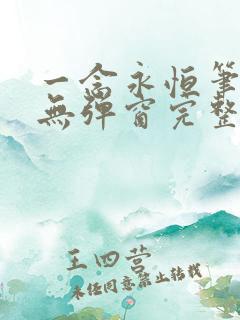 一念永恒筆
無彈窗完整
王四营
未经同意禁止转载